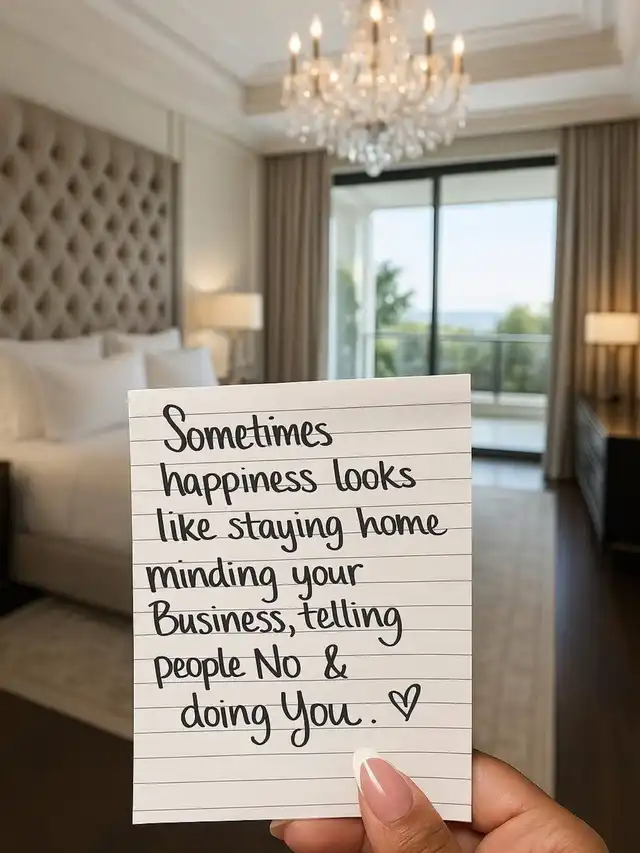 Sometimes
happiness looks
like staying home
minding your
Business, telling
people No &
doing You. ♡